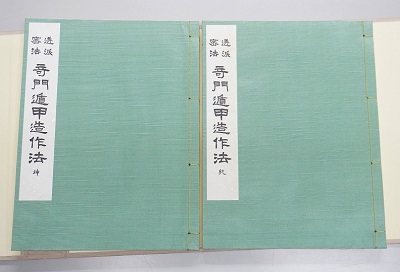 透派
密法
奇門遁甲造作法
乾
透派
密法
奇門遁甲造作法
坤